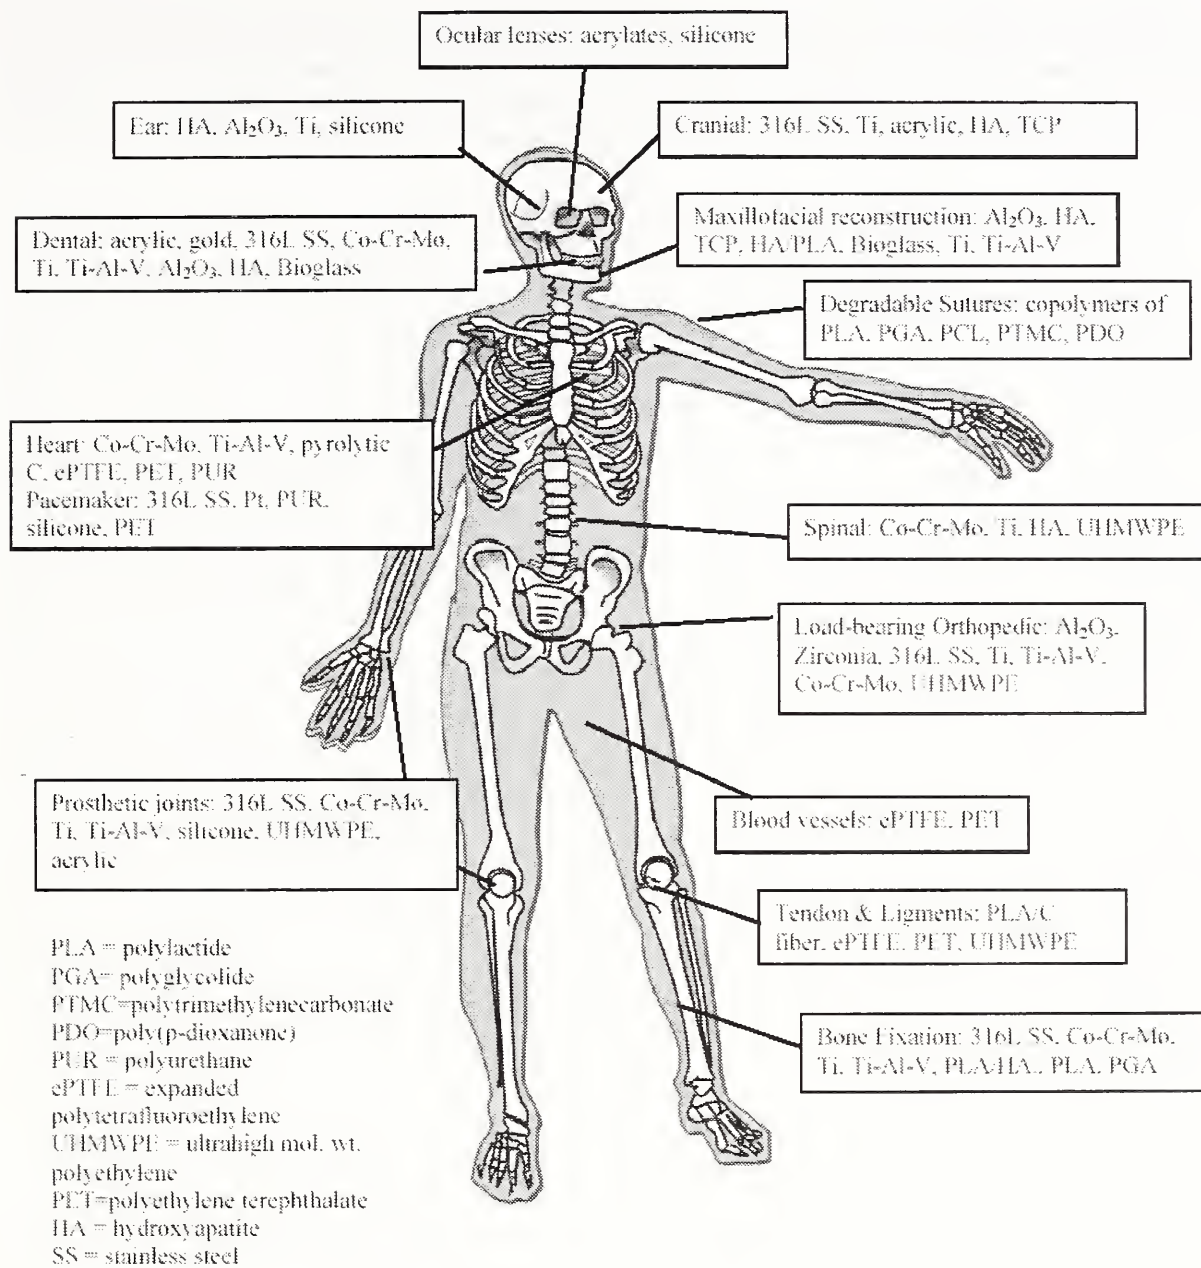 Ocular lenses: acrylates, silicone
Ear: HA, Al₂O₃, Ti, silicone
Cranial: 316L SS, Ti, acrylic, HA, TCP
Maxillofacial reconstruction: Al₂O₃, HA,
TCP, HA/PLA, Bioglass, Ti, Ti-Al-V
Dental: acrylic, gold, 316L SS, Co-Cr-Mo,
Ti, Ti-Al-V, Al₂O₃, HA, Bioglass
Degradable Sutures: copolymers of
PLA, PGA, PCL, PTMC, PDO
Heart: Co-Cr-Mo, Ti-Al-V, pyrolytic
C, ePTFE, PET, PUR
Pacemaker: 316L SS, Pt, PUR,
silicone, PET
Spinal: Co-Cr-Mo, Ti, HA, UHMWPE
Load-bearing Orthopedic: Al₂O₃,
Zirconia, 316L SS, Ti, Ti-Al-V,
Co-Cr-Mo, UHMWPE
Prosthetic joints: 316L SS, Co-Cr-Mo,
Ti, Ti-Al-V, silicone, UHMWPE,
acrylic
Blood vessels: ePTFE, PET
Tendon & Ligments: PLA/C
fiber, ePTFE, PET, UHMWPE
Bone Fixation: 316L SS, Co-Cr-Mo,
Ti, Ti-Al-V, PLA/HA,, PLA, PGA
PLA = polylactide
PGA= polyglycolide
PTMC=polytrimethylenecarbonate
PDO=poly(p-dioxanone)
PUR = polyurethane
ePTFE = expanded
polytetrafluoroethylene
UHMWPE = ultrahigh mol. wt.
polyethylene
PET=polyethylene terephthalate
HA = hydroxyapatite
SS = stainless steel